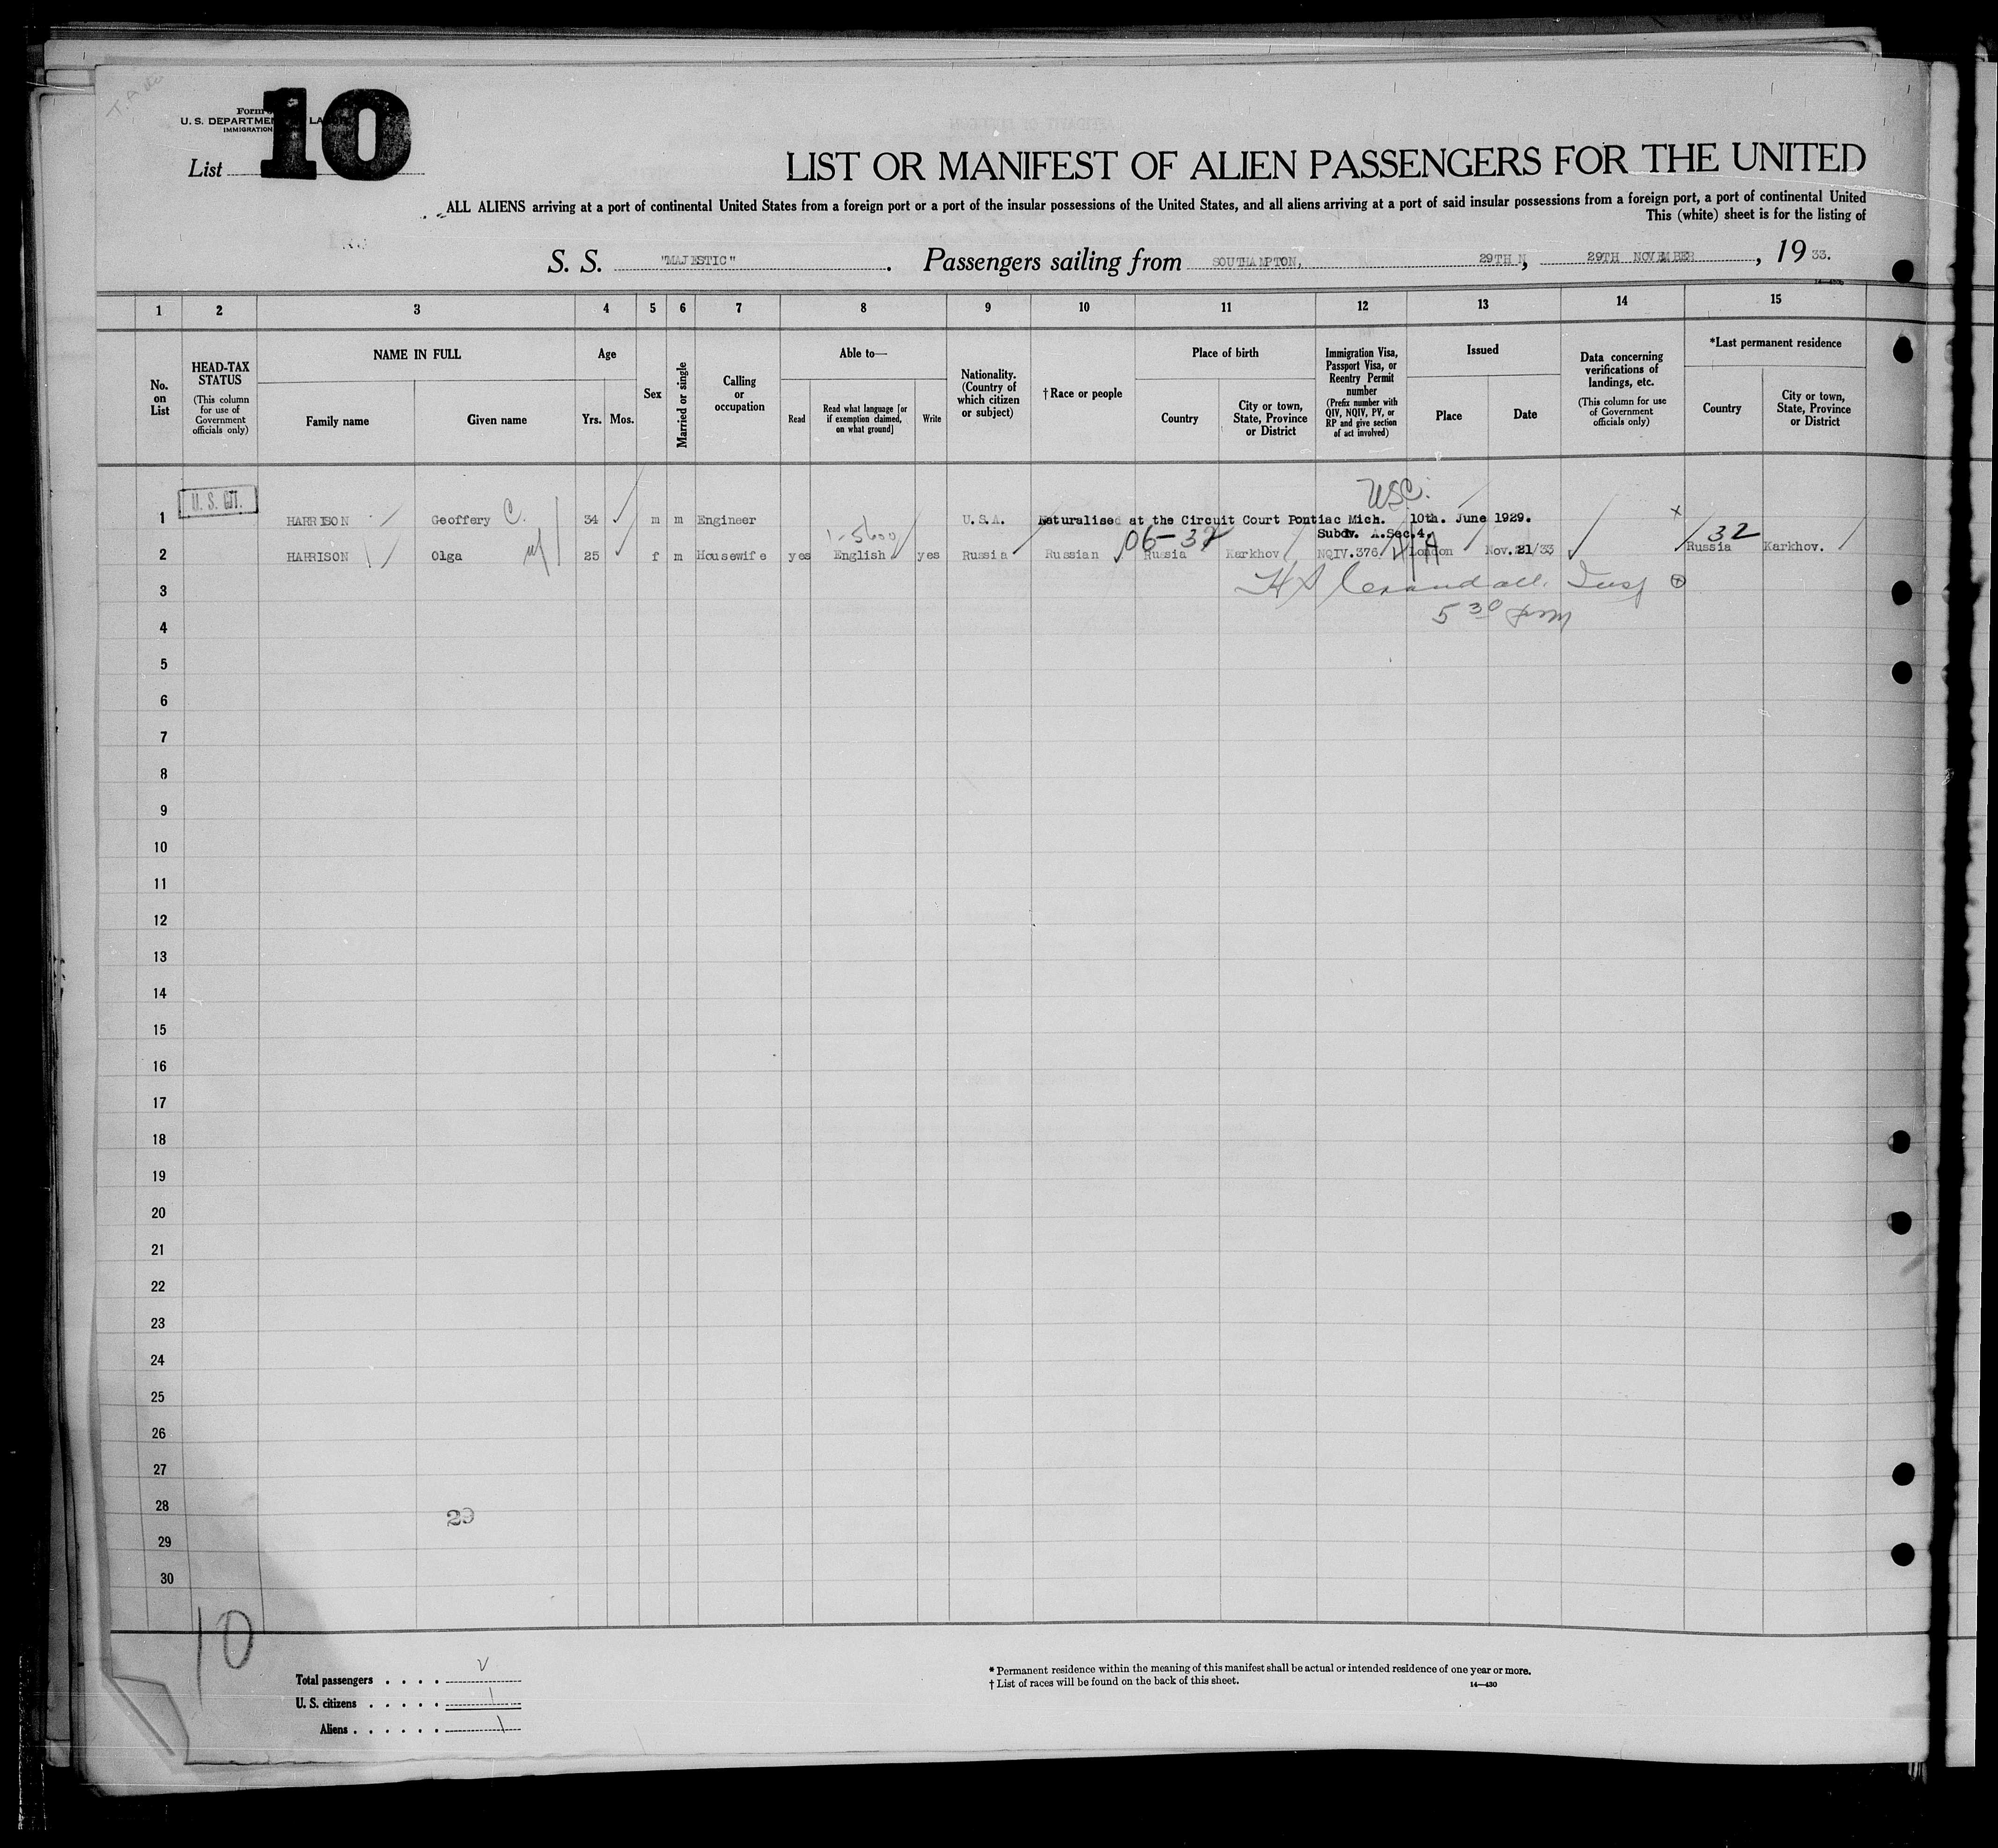 10
U. S. DEPARTMEN
IMMIGRATION
List
LIST OR MANIFEST OF ALIEN PASSENGERS FOR THE UNITED
ALL ALIENS arriving at a port of continental United States from a foreign port or a port of the insular possessions of the United States, and all aliens arriving at a port of said insular possessions from a foreign port, a port of continental United
This (white) sheet is for the listing of
S. S. "MAJESTIC". Passengers sailing from SOUTHAMPTON, 29TH N, 29TH NOVEMBER, 19 33.
1 2 3 4 5 6 7 8 9 10 11 12 13 14 15
No. on List
HEAD-TAX STATUS (This column for use of Government officials only)
NAME IN FULL
Family name Given name
Age
Yrs. Mos.
Sex
Married or single
Calling or occupation
Able to—
Read Read what language [or if exemption claimed, on what ground] Write
Nationality. (Country of which citizen or subject)
† Race or people
Place of birth
Country City or town, State, Province or District
Immigration Visa, Passport Visa, or Reentry Permit number (Prefix number with QIV, NQIV, PV, or RP and give section of act involved)
Issued
Place Date
Data concerning verifications of landings, etc. (This column for use of Government officials only)
*Last permanent residence
Country City or town, State, Province or District
USC.
1 U. S. CIT. HARRISON Geoffery C. 34 m m Engineer U.S.A. Naturalised at the Circuit Court Pontiac Mich. 10th. June 1929.
06-32 Subdv. A.Sec.4. 32
2 HARRISON Olga 25 f m Housewife yes English yes Russia Russian Russia Karkhov NQIV.376 London Nov.21/33 Russia Karkhov.
3 H S Crandall. Insp
4 5 30 pm
5
6
7
8
9
10
11
12
13
14
15
16
17
18
19
20
21
22
23
24
25
26
27
28 29
29
30
10
Total passengers . . . .
U. S. citizens . . . . . 1
Aliens . . . . . . 1
* Permanent residence within the meaning of this manifest shall be actual or intended residence of one year or more.
† List of races will be found on the back of this sheet. 14—430